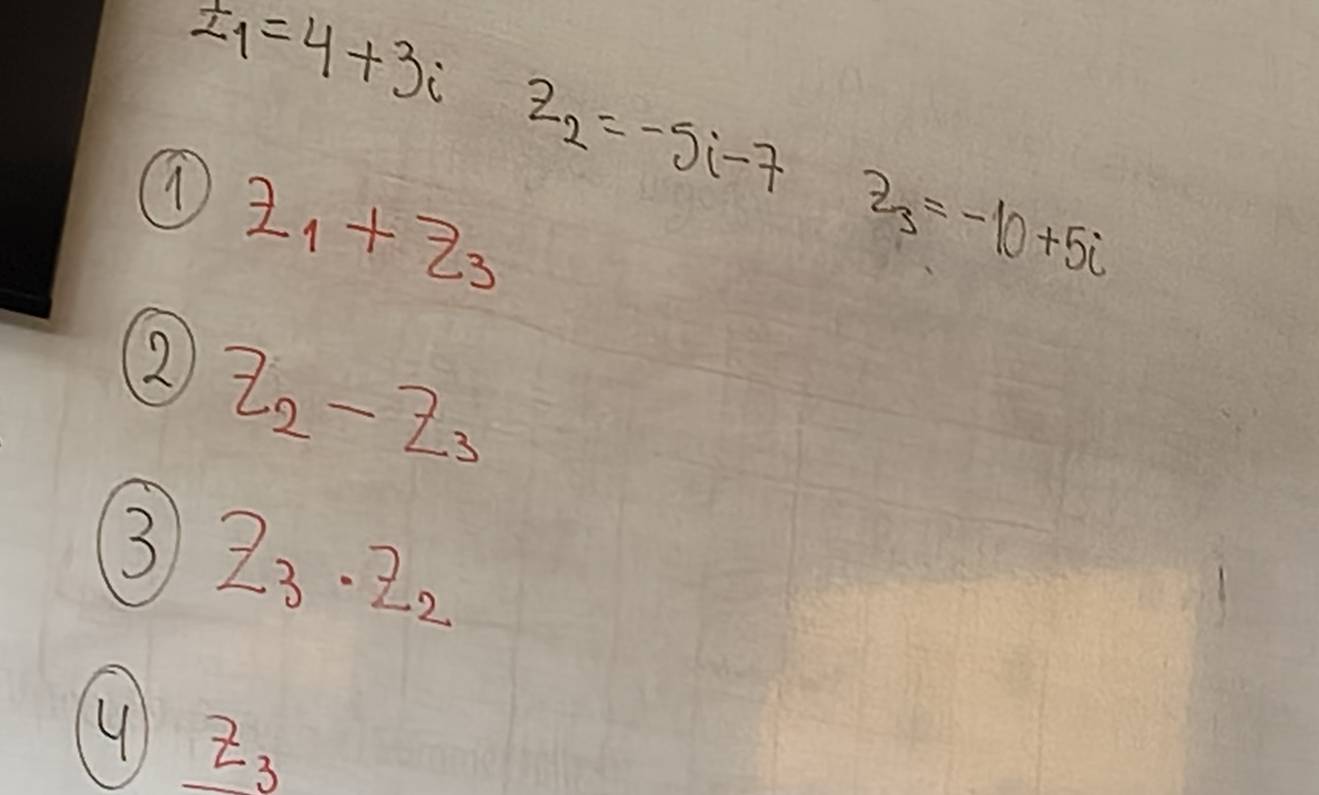 z₁=4+3i z₂=-5i-7 z₃=-10+5i
① z₁+z₃
② z₂-z₃
③ z₃·z₂
④ z₃